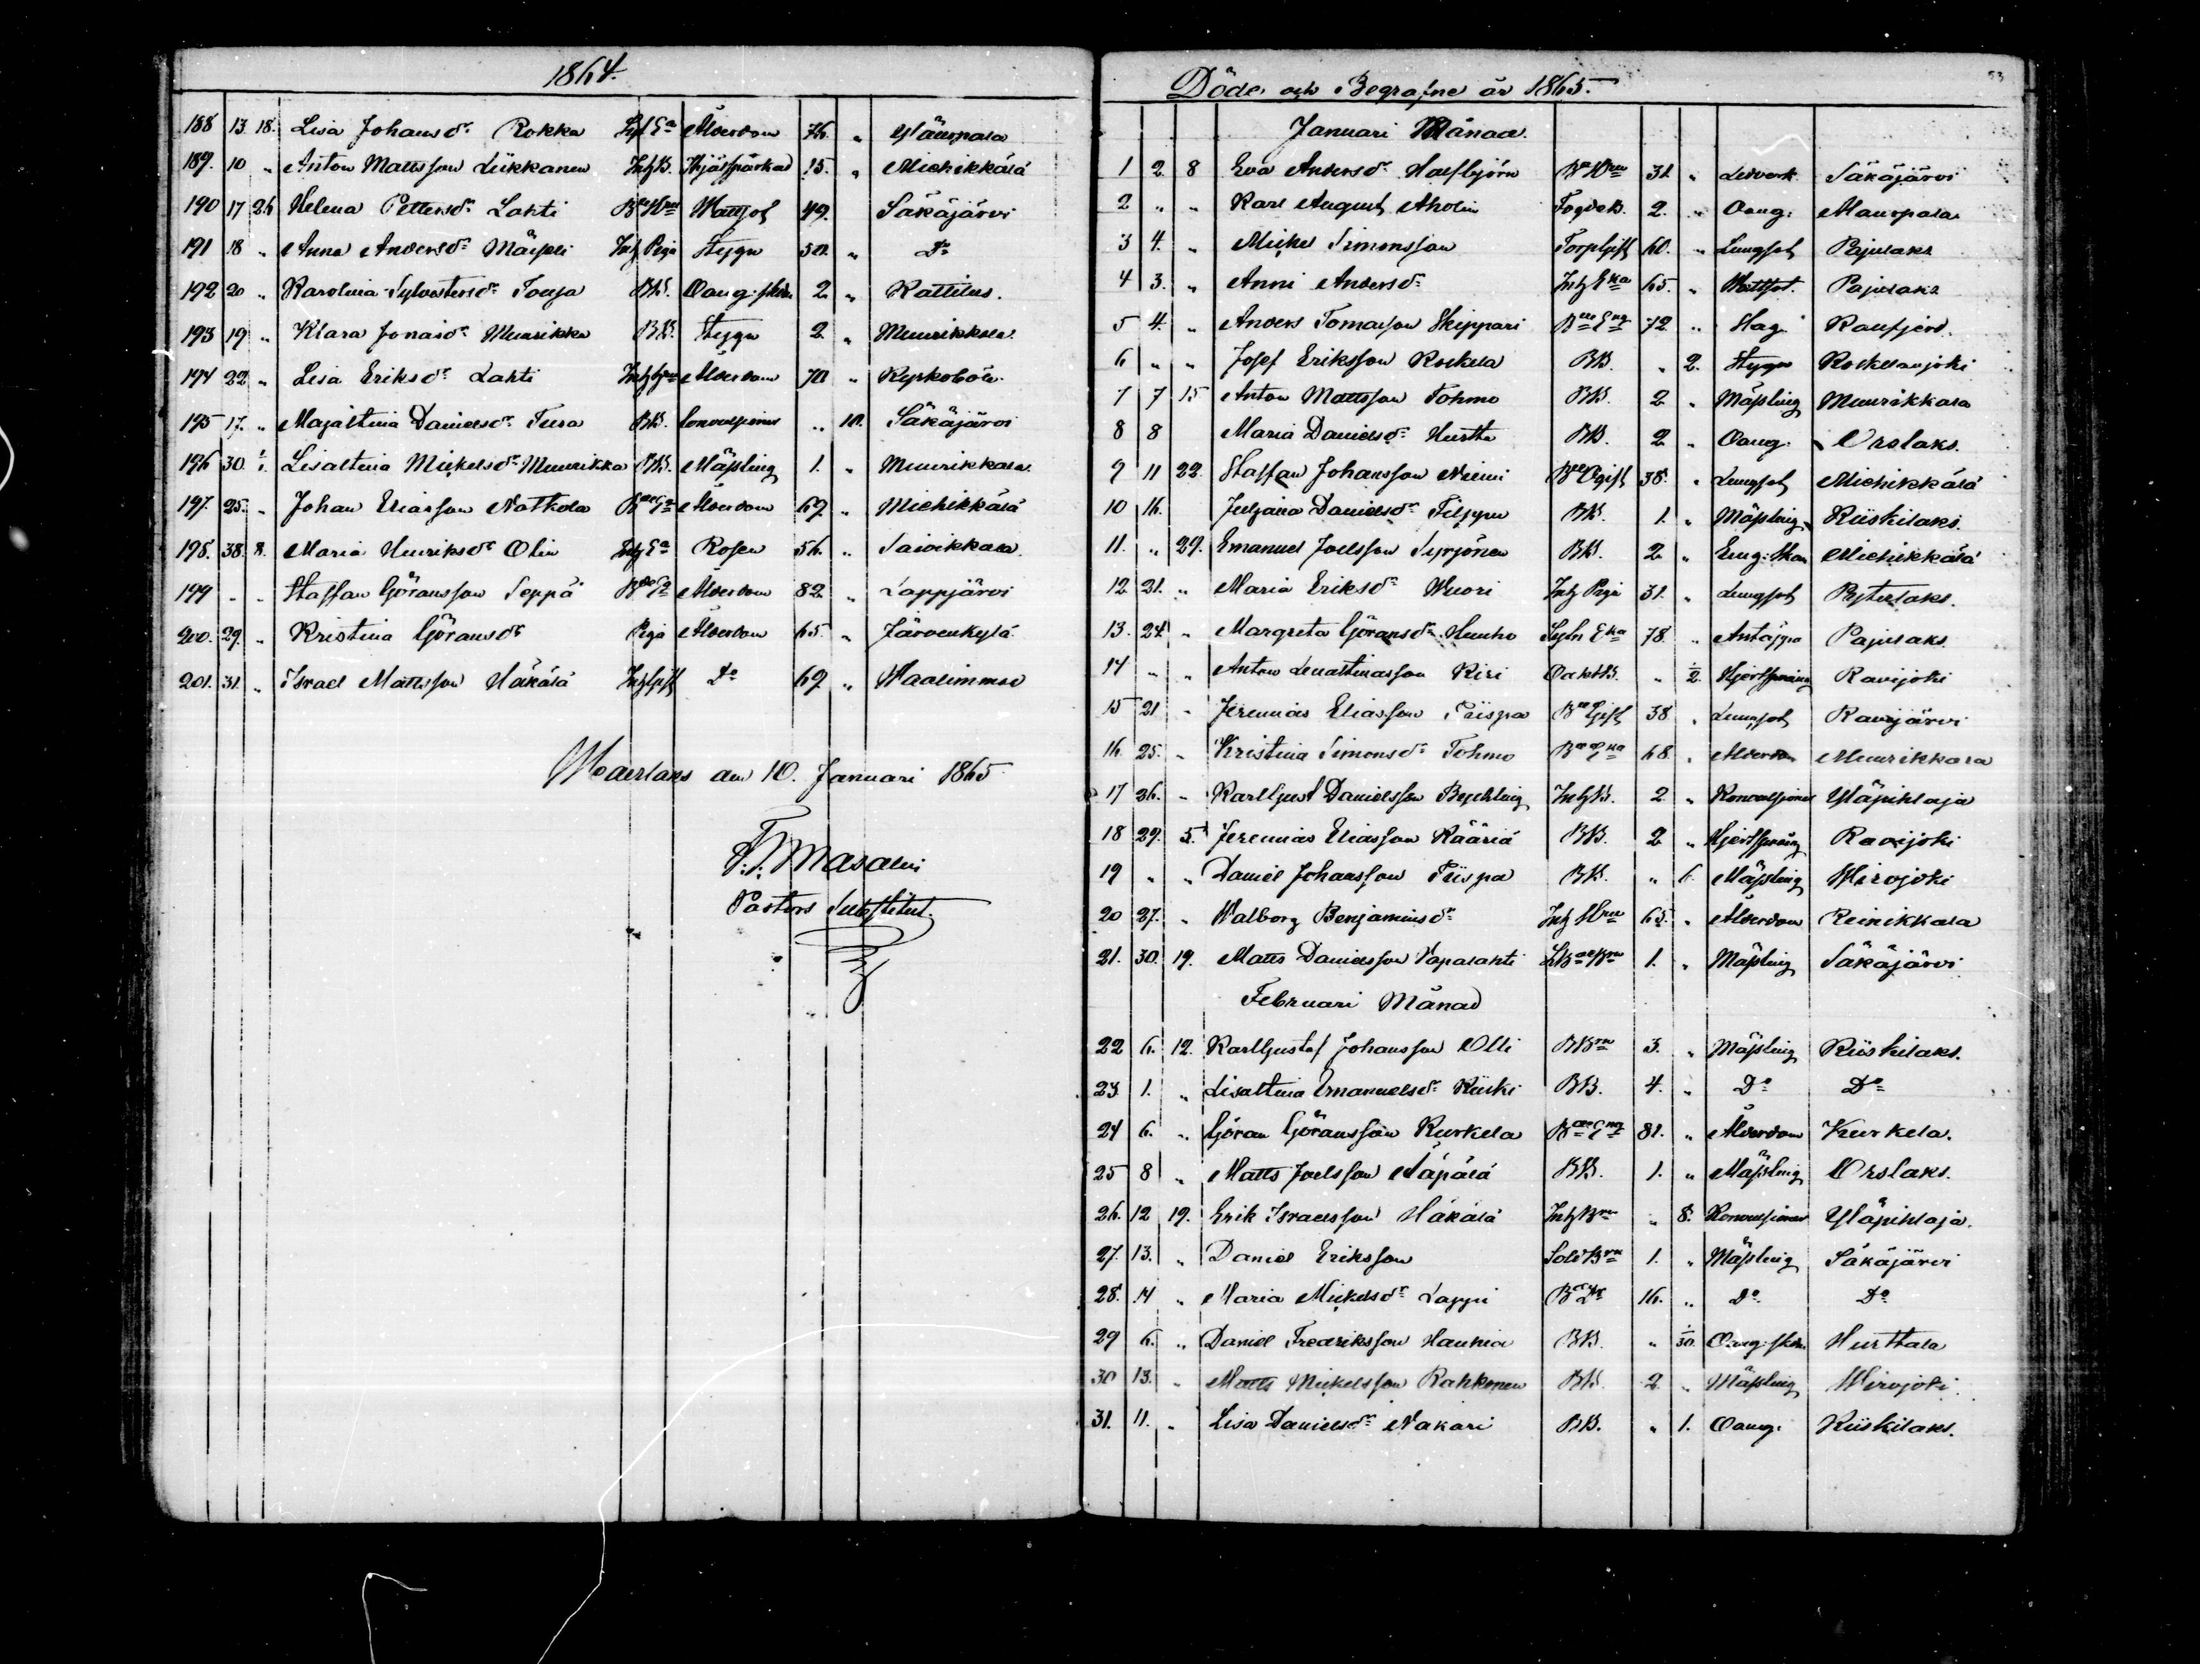 1864.
188 13. 18. Lisa Johansdr Rokka Ålderdom 76. „
189. 10 „ Anton Mattsson Liikkanen InhB. 15. „ Miehikkälä
190 17 26 Helena Pettersdr Lahti Wattsot 49. „ Säkäjärvi
191 18 „ Anna Andersdr Inh Piga Stygn 50. „ Do
192 20 „ Karolina Sylvestersdr Touja BB. Oang: 2 „ Kattilus.
193 19 „ Klara Jonasdr Muurikka BB. Stygn 2 „ Muurikkala
194 22 „ Lisa Eriksdr Lahti Ålderdom 70 „ Kyrkoböle
195 17. „ Majastina Danielsdr Tusa BB. Convulsioner „ 10. Säkäjärvi
196 30. 1/1. Lisastina Mickelsdr Muurikka BB. Mässling 1. „ Muurikkala
197. 25. „ Johan Eliasson Notkola Ålderdom 69 „ Miehikkälä
198. 38. 8. Maria Henriksdr Olin Rosen 56. „ Saivikkala
199 - - Staffan Göransson Seppä Ålderdom 82 „ Lappjärvi
200. 29. „ Kristina Göransdr Piga Ålderdom 65. „ Järvenkylä
201. 31. „ Israel Mattsson Häkälä Inhgift Do 69. „ Waalimmo
den 10. Januari 1865
Masalin
Pastors Substitut.
53
Döde och Begrafne år 1865.
Januari Månad.
1 2 8 Eva Andersdr 31. „ Säkäjärvi
2 „ „ Karl August Aholin 2. „ Oang:
3 4. „ Mickel Simonsson Torpgift 60. „ Lungsot Pajulaks
4 3. „ Anni Andersdr Inh Eka 65. „ Wattsot. Pajulaks
5 4. „ Anders Tomasson Skippari 72 „ Slag
6 „ „ Josef Eriksson Rockela BB. „ 2. Stygn
7 7 15 Anton Mattsson Tohmo BB. 2 „ Mässling Muurikkala
8 8 Maria Danielsdr Hurtta BB. 2 „ Oang. Orslaks.
9 11 22. Staffan Johansson Niemi 38. „ Lungsot Miehikkälä
10 16. Juljana Danielsdr Filppu BB. 1. „ Mässling Kiiskilaks.
11. „ 29. Emanuel Joelsson Syrjönen BB. 2 „ Miehikkälä
12 21. „ Maria Eriksdr Wuori Inh Piga 31. „ Lungsot Pyterlaks.
13. 24. „ Margreta Göransdr Huuho 78. „ Pajulaks
14 „ „ Anton Kiri „ 1/2. Ravijoki
15 21 „ Jeremias Eliasson Piispa 38 „ Lungsot Ravijärvi
16 25. „ Kristina Simonsdr Tohmo 68. „ Ålderdom Muurikkala
17 26. „ Karlgust Danielsson InhB. 2 „ Konvulsioner Yläpihlaja
18 29. 5. Jeremias Eliasson Kääriä BB. 2 „ Ravijoki
19 „ „ Daniel Johansson Piispa BB. „ 6. Mässling Wirojoki
20 27. „ Walborg Benjaminsdr 65. „ Ålderdom Reinikkala
21. 30. 19. Matts Danielsson Vapalahti 1. „ Mässling Säkäjärvi
Februari Månad
22 6. 12. Karlgustaf Johansson Olli 3. „ Mässling Kiiskilaks.
23. 1. „ Lisastina Emanuelsdr Kiiski BB. 4. „ Do Do
24 6. „ Göran Göransson Kurkela 81. „ Ålderdom Kurkela.
25 8 „ Matts Joelsson Näpälä BB. 1. „ Mässling Orslaks.
26. 12 19. Erik Israelsson Häkälä „ 8. Konvulsioner Yläpihlaja.
27. 13. „ Daniel Eriksson 1. „ Mässling Säkäjärvi
28. 14 „ Maria Mickelsdr Lappi 16. „ Do Do
29 6. „ Daniel Fredriksson Hauhia BB. „ 1/30. Oang: Hurttala
30 13. „ Matts Mickelsson Rahkonen BB. 2 „ Mässling Wirojoki
31. 11. „ Lisa Danielsdr Nakari BB. „ 1. Oang: Kiiskilaks.